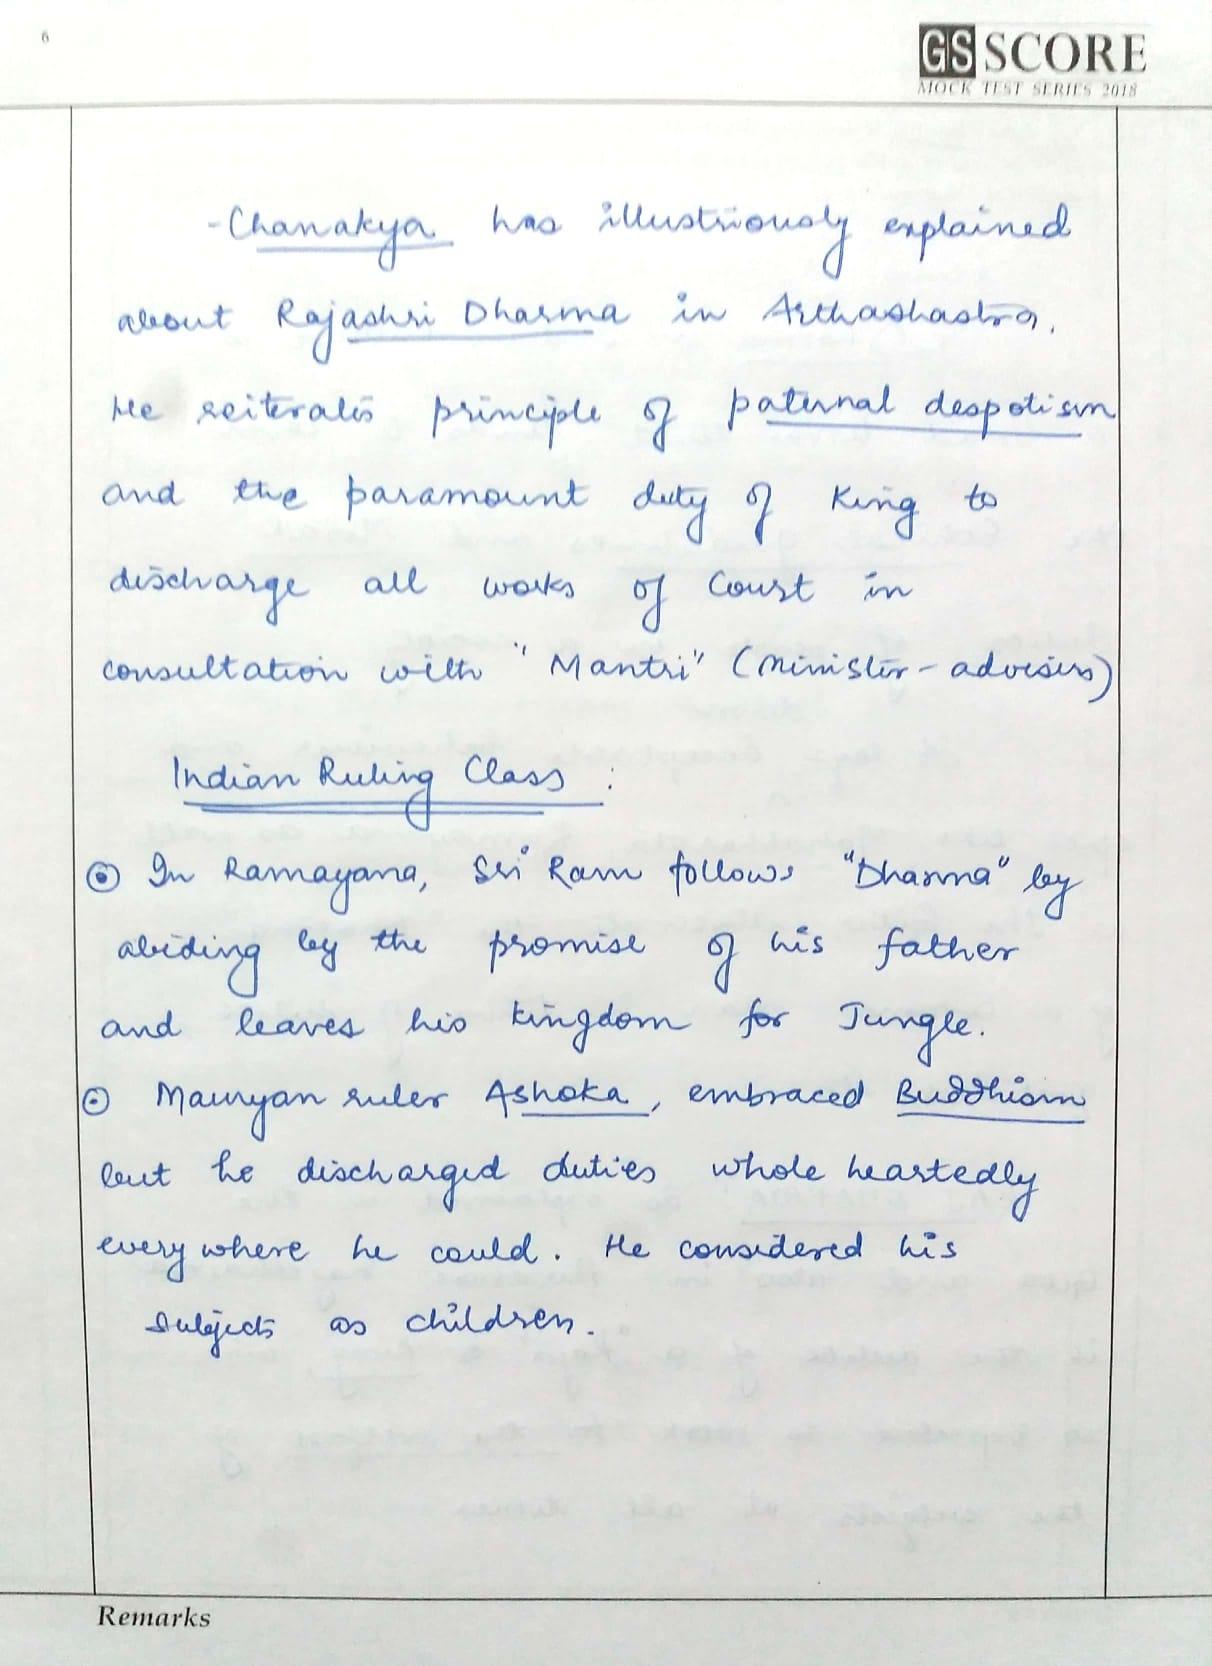 6
GS SCORE
MOCK TEST SERIES 2018
- Chanakya has illustriously explained
about Rajashri Dharma in Arthashastra.
He reiterates principle of paternal despotism
and the paramount duty of King to
discharge all works of Court in
consultation with "Mantri" (Minister-advisers)
Indian Ruling Class :
In Ramayana, Sri Ram follows "Dharma" by
abiding by the promise of his father
and leaves his kingdom for Jungle.
Mauryan ruler Ashoka, embraced Buddhism
but he discharged duties whole heartedly
everywhere he could. He considered his
subjects as children.
Remarks